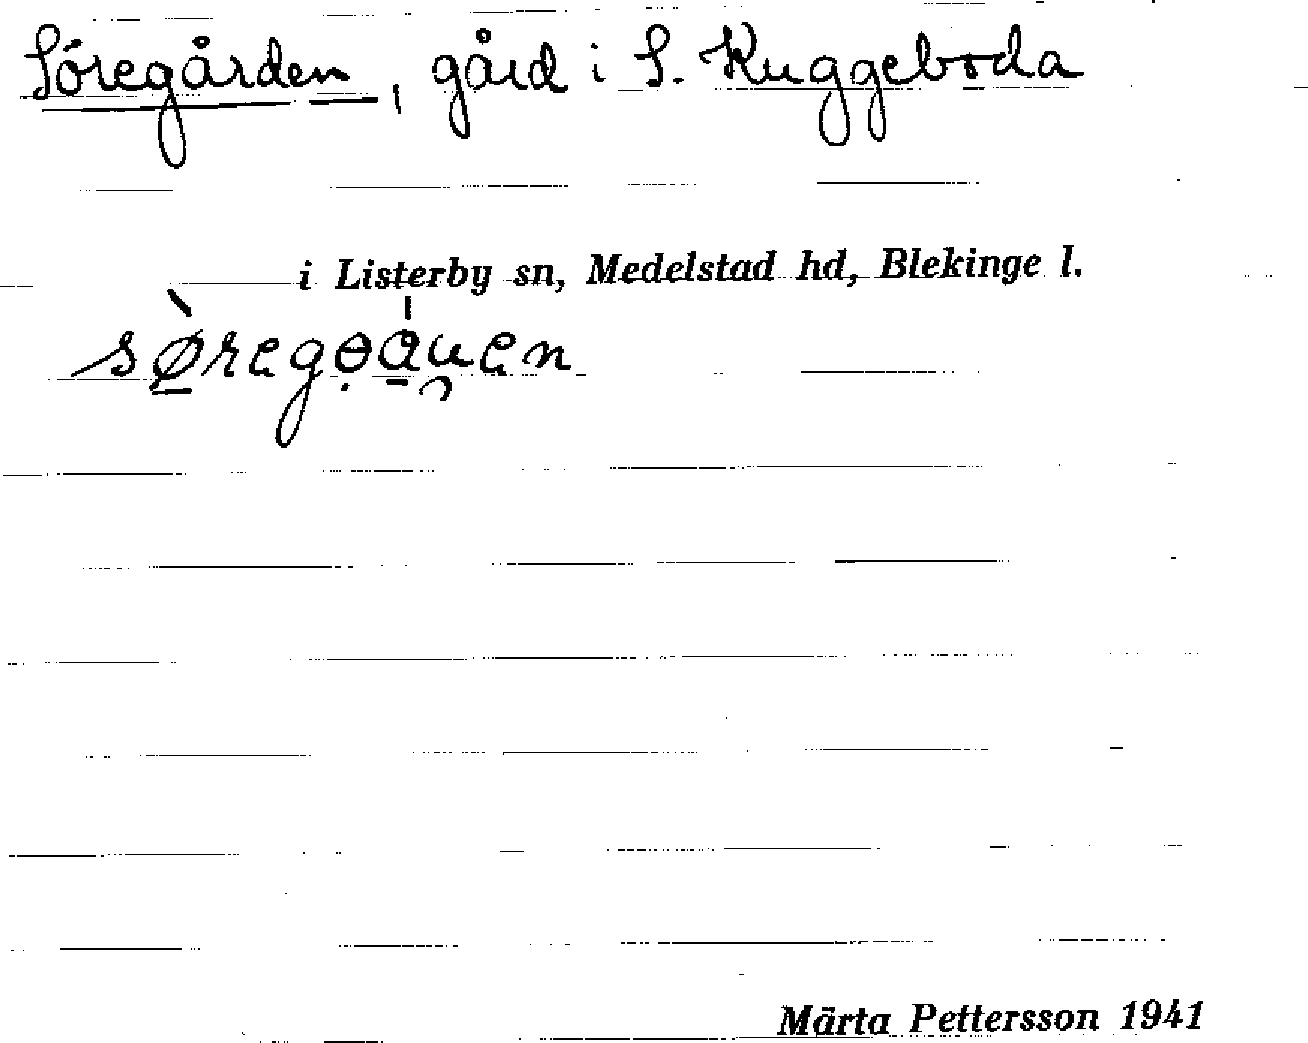 Söregården, gård i S. Kuggeboda
i Listerby sn, Medelstad hd, Blekinge l.
Märta Pettersson 1941